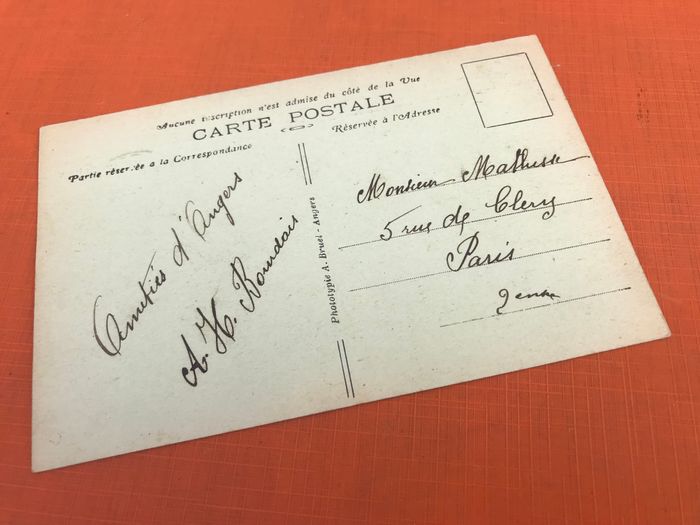 Aucune inscription n'est admise du côté de la Vue
CARTE POSTALE
Partie réservée a la Correspondance
Réservée à l'Adresse
Amitiés d'Angers
A. H. Bourdais
Phototypie A. Bruel - Angers
Monsieur
5 rue de Clery
Paris